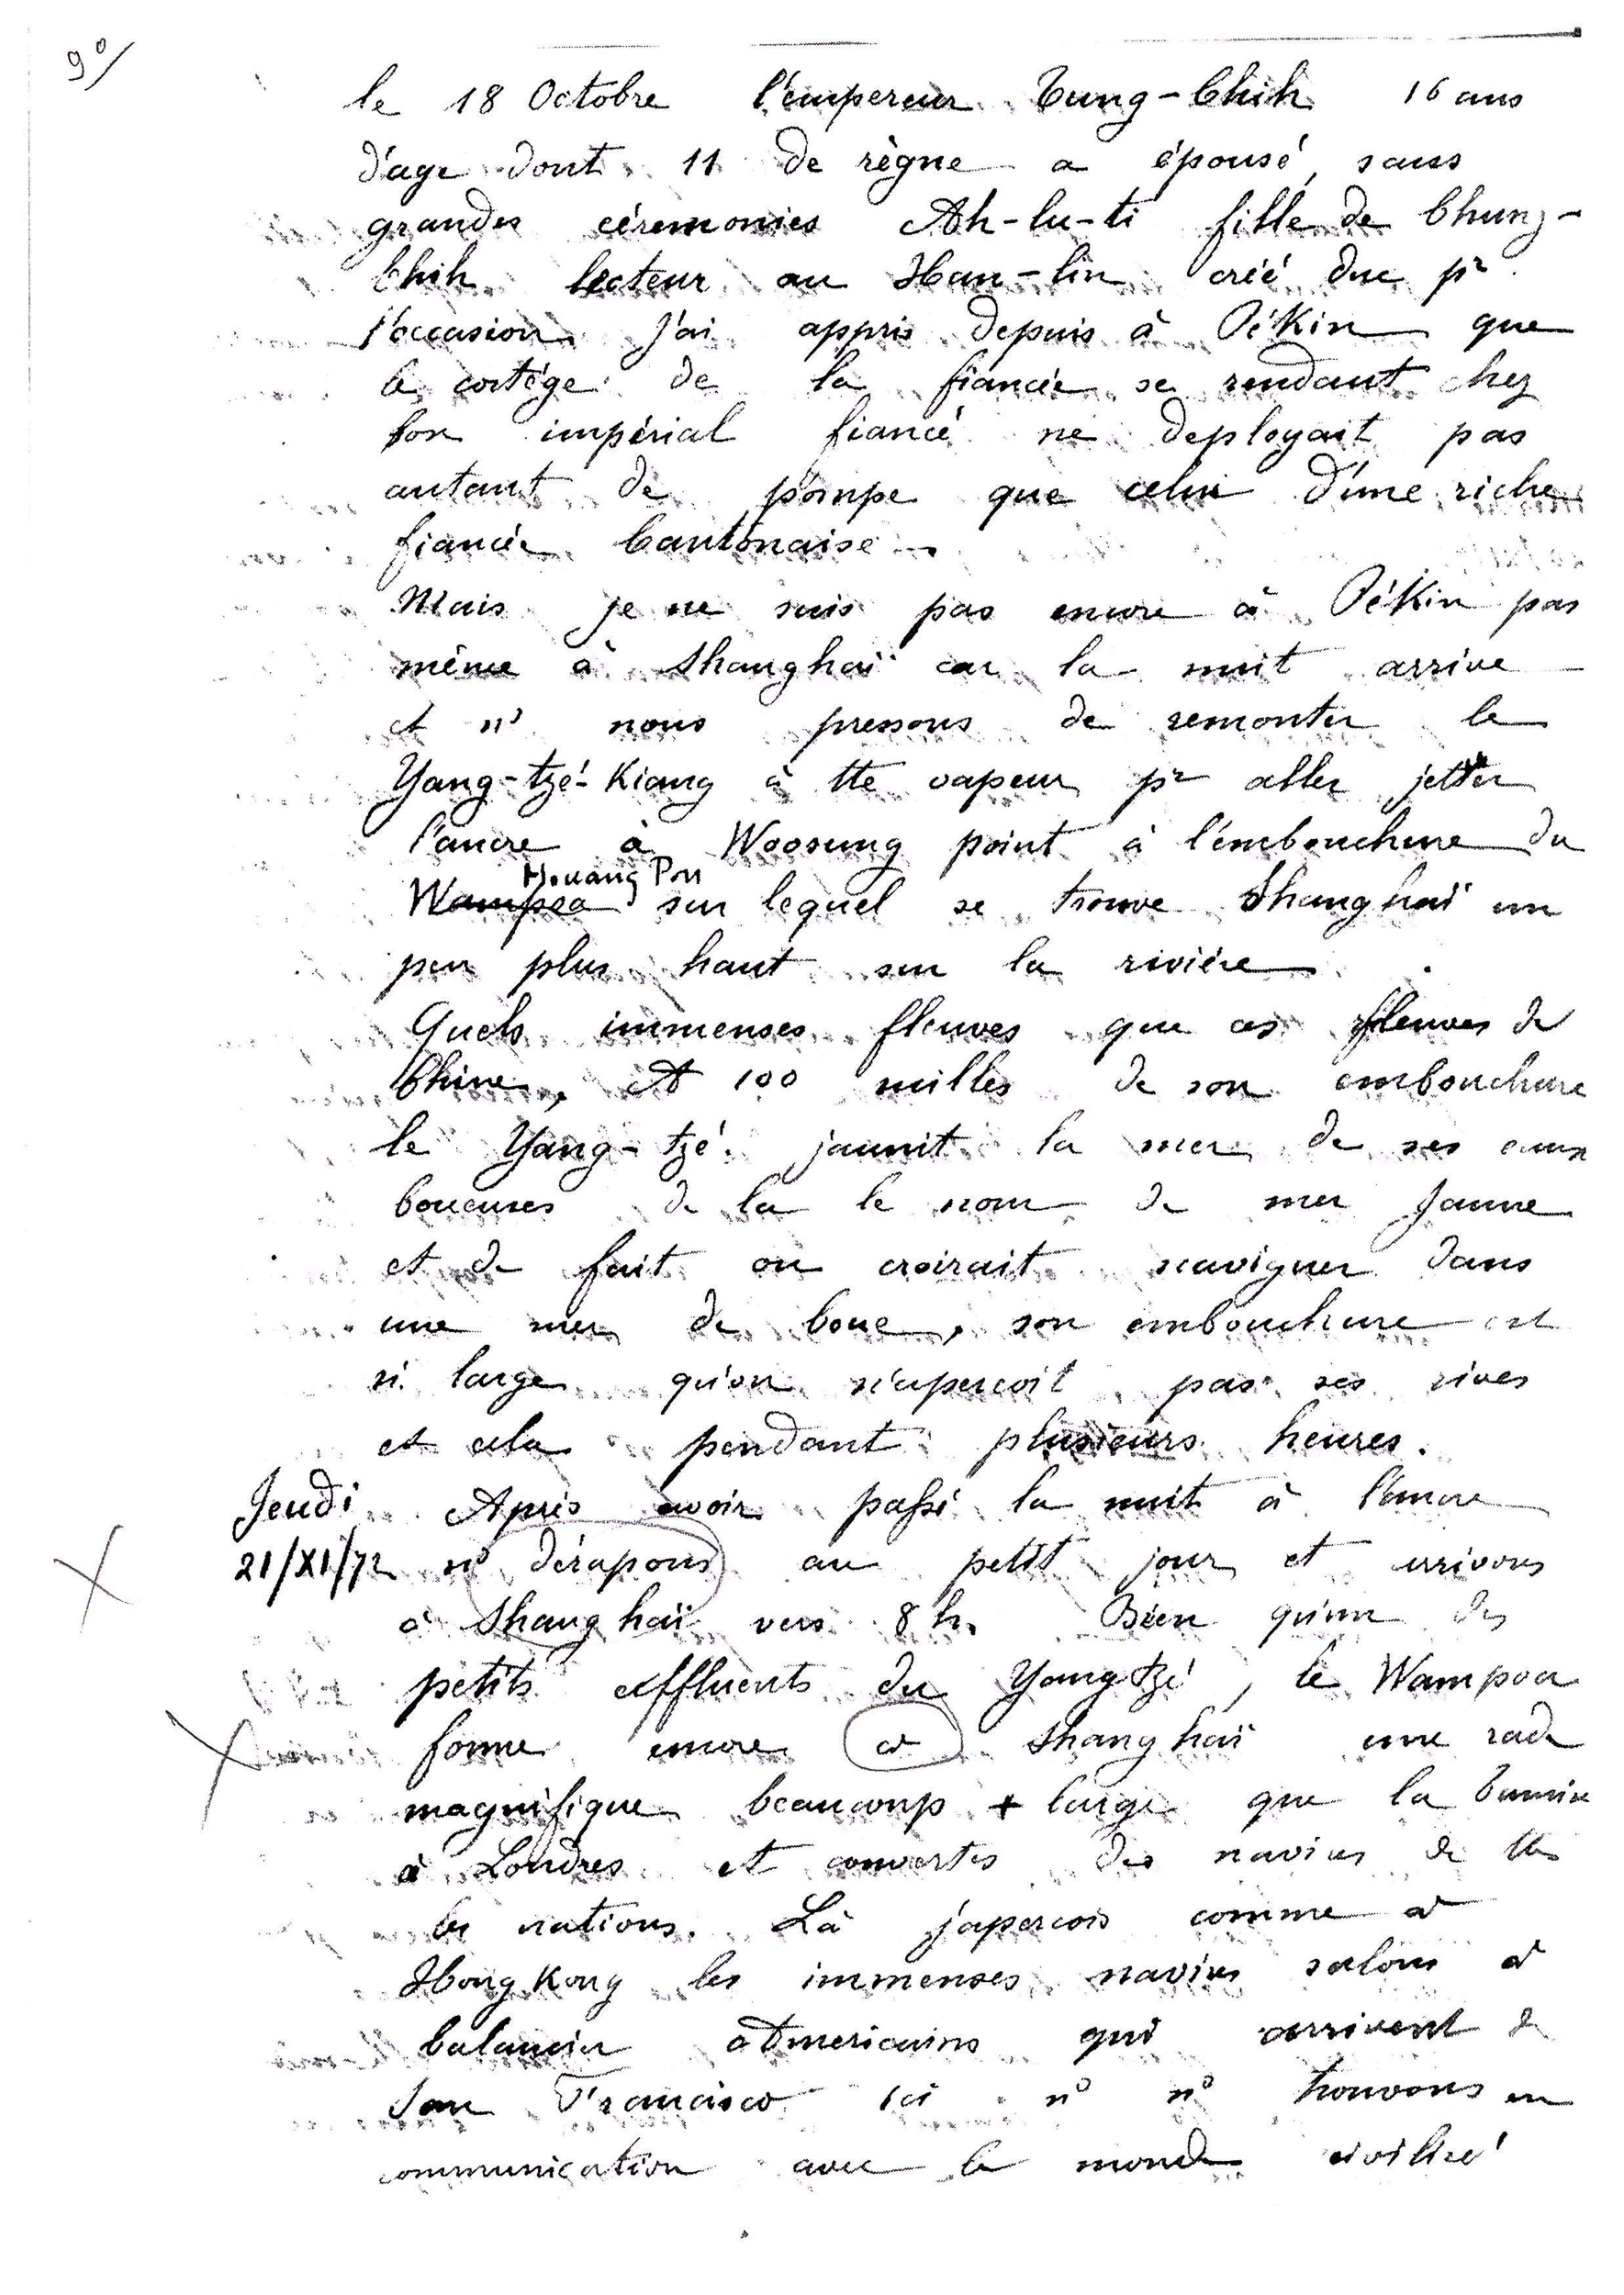 9°/
le 18 Octobre l'empereur Tung-Chih 16 ans
d'age dont 11 de règne a épousé, sans
grandes céremonies Ah-lu-ti fille de Chung-
Chih lecteur au Han-lin créé duc pr
l'occasion j'ai appris depuis à Pékin que
le cortége de la fiancée se rendant chez
son impérial fiancé ne deployait pas
autant de pompe que celui d'une riche
fiancée Cantonaise.
Mais je ne suis pas encore à Pékin pas
même à Shanghaï car la nuit arrive
et ns nous pressons de remonter le
Yang-tzé-Kiang à tte vapeur pr aller jetter
l'ancre à Woosung point à l'embouchure du
Houang Pou
Wampoa sur lequel se trouve Shanghaï un
peu plus haut sur la rivière.
Quels immenses fleuves que ces fleuves de
Chine, A 100 milles de son embouchure
le Yang-tzé jaunit la mer de ses eaux
boueuses de la le nom de mer Jaune
et de fait on croirait naviguer dans
une mer de boue, son embouchure est
si large qu'on n'apercoit pas ses rives
et cela pendant plusieurs heures.
Jeudi Après avoir passé la nuit à l'ancre
21/XI/72 ns dérapons au petit jour et arrivons
à Shanghaï vers 8 h. Bien qu'un des
petits affluents du Yangtzé, le Wampoa
forme encore à Shanghaï une rade
magnifique beaucoup + large que la Tamise
à Londres et couvertes des navires de ttes
les nations. Là j'apercois comme à
Hong Kong les immenses navires salons à
balancier Americains qui arrivent de
San Francisco ici ns ns trouvons en
communication avec le monde civilisé